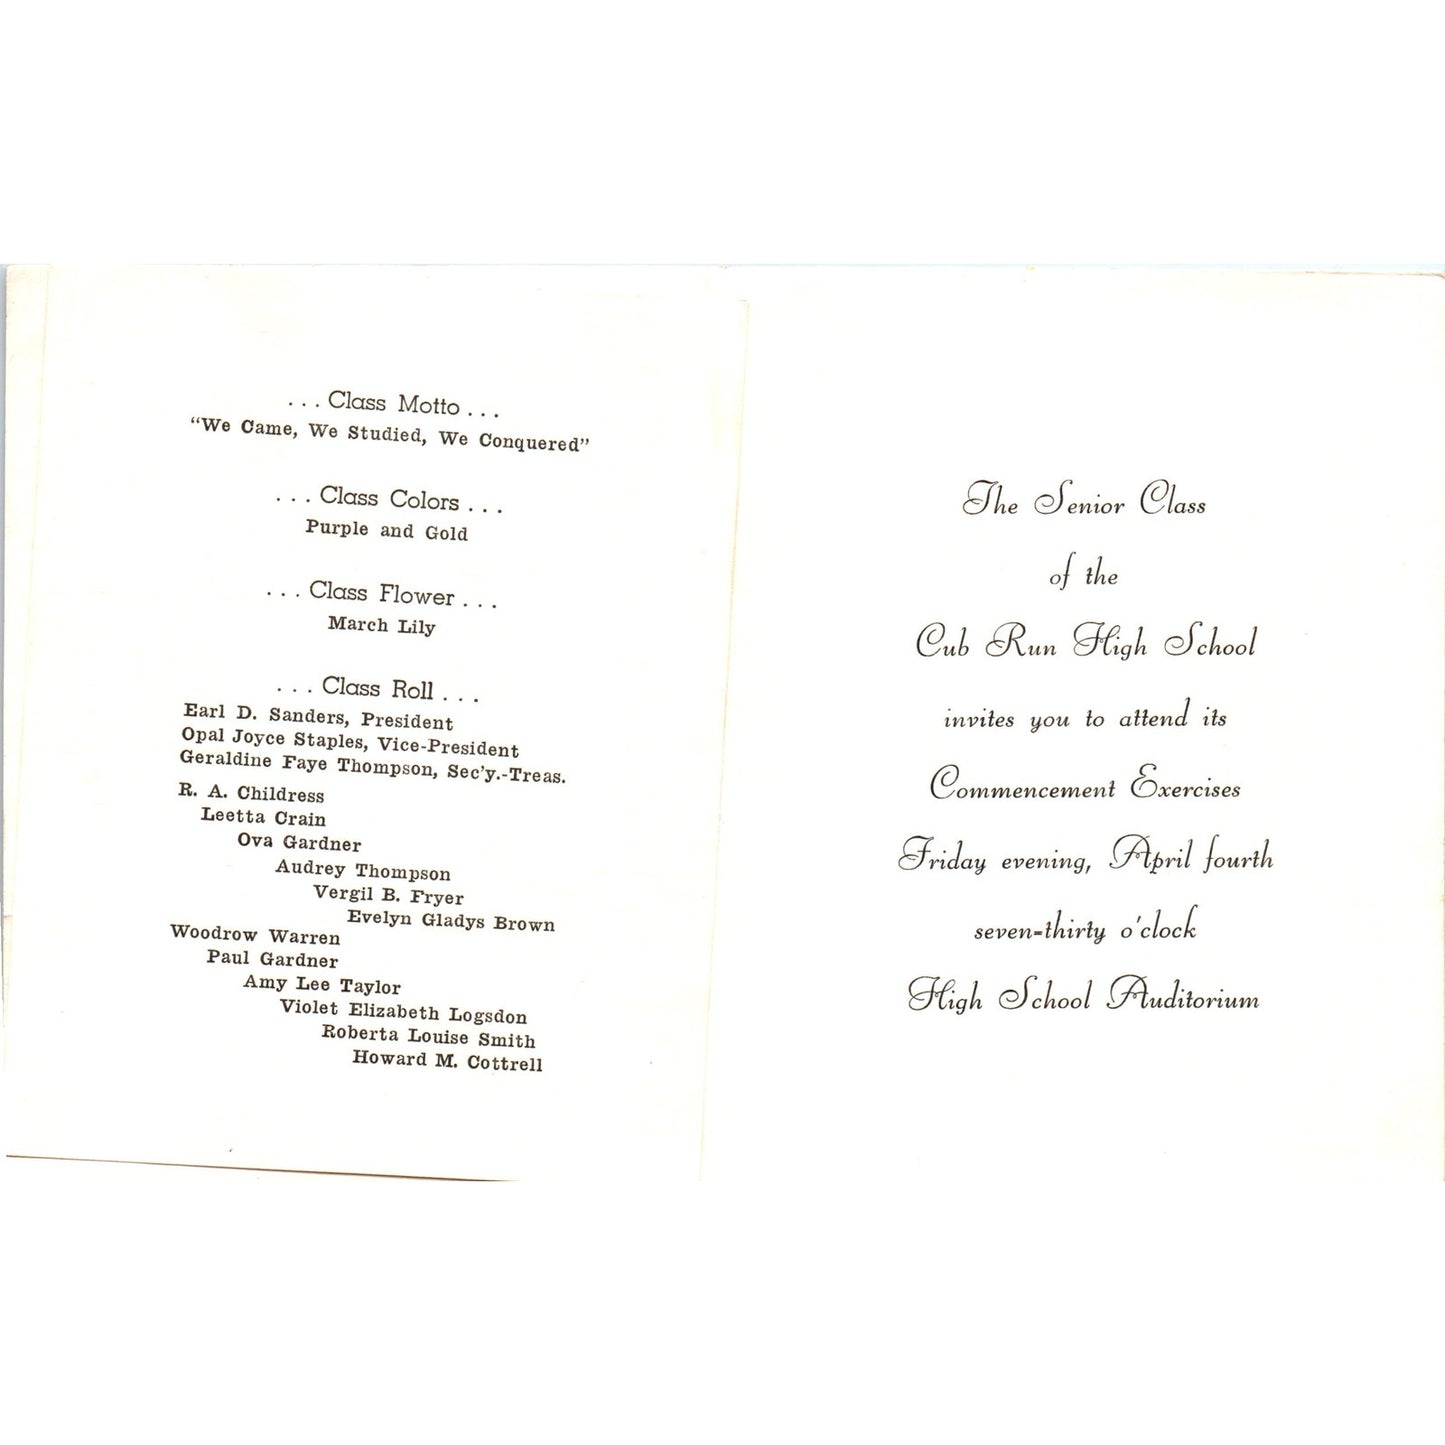 . . . Class Motto . . .
“We Came, We Studied, We Conquered”
. . . Class Colors . . .
Purple and Gold
. . . Class Flower . . .
March Lily
. . . Class Roll . . .
Earl D. Sanders, President
Opal Joyce Staples, Vice-President
Geraldine Faye Thompson, Sec’y.-Treas.
R. A. Childress
Leetta Crain
Ova Gardner
Audrey Thompson
Vergil B. Fryer
Evelyn Gladys Brown
Woodrow Warren
Paul Gardner
Amy Lee Taylor
Violet Elizabeth Logsdon
Roberta Louise Smith
Howard M. Cottrell
The Senior Class
of the
Cub Run High School
invites you to attend its
Commencement Exercises
Friday evening, April fourth
seven-thirty o'clock
High School Auditorium